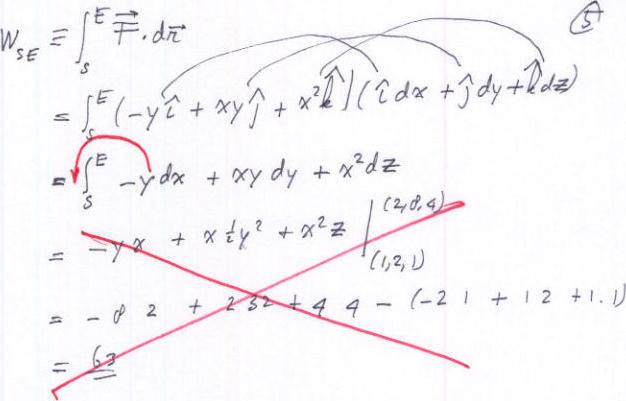 ⑤
W_SE ≡ ∫_S^E F⃗ · dr⃗
= ∫_S^E (-y î + xy ĵ + x² k̂)(î dx + ĵ dy + k̂ dz)
= ∫_S^E -y dx + xy dy + x² dz
= -y x + x ½ y² + x² z |_(1,2,1)^(2,8,4)
= -8 2 + 2 32 + 4 4 - (-2 1 + 1 2 + 1.1)
= 63